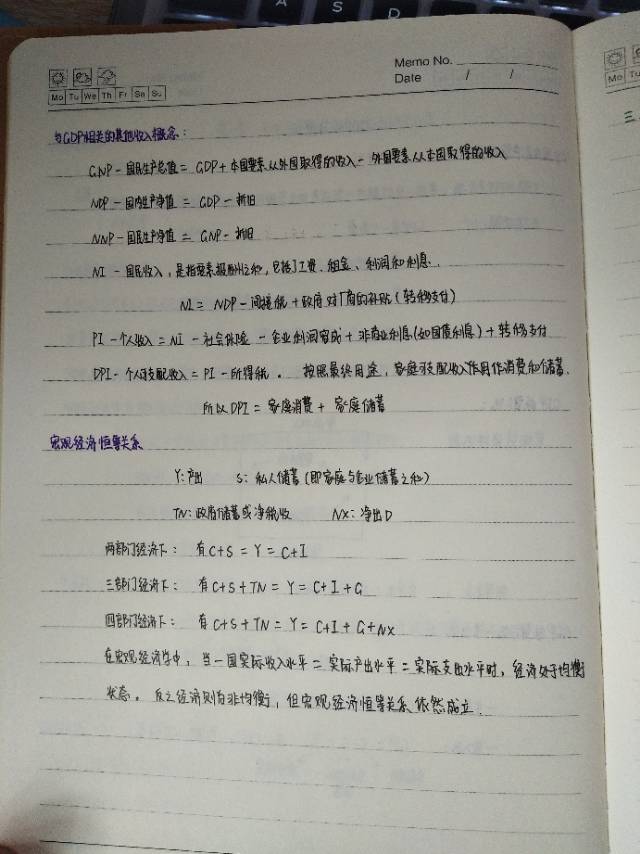 A S D
Memo No.
Date / /
Mo Tu We Th Fr Sa Su
Mo Tu
三.
与GDP相关的其他收入概念：
GNP-国民生产总值 = GDP+本国要素从外国取得的收入 - 外国要素从本国取得的收入
NDP-国内生产净值 = GDP-折旧
NNP-国民生产净值 = GNP-折旧
NI - 国民收入，是指要素报酬之和，包括了工资、租金、利润和利息.
NI = NDP-间接税+政府对厂商的补贴（转移支付）
PI-个人收入 = NI-社会保险-企业利润留成+非商业利息(如国债利息)+转移支付
DPI-个人可支配收入 = PI-所得税. 按照最终用途，家庭可支配收入作用作消费和储蓄.
所以DPI = 家庭消费+家庭储蓄
宏观经济恒等关系
Y:产出 S:私人储蓄(即家庭与企业储蓄之和)
TN:政府储蓄或净税收 NX:净出口
两部门经济下: 有C+S=Y=C+I
三部门经济下: 有C+S+TN=Y=C+I+G
四部门经济下: 有C+S+TN=Y=C+I+G+NX
在宏观经济学中，当一国实际收入水平=实际产出水平=实际支出水平时，经济处于均衡
状态。反之经济则为非均衡，但宏观经济恒等关系依然成立.